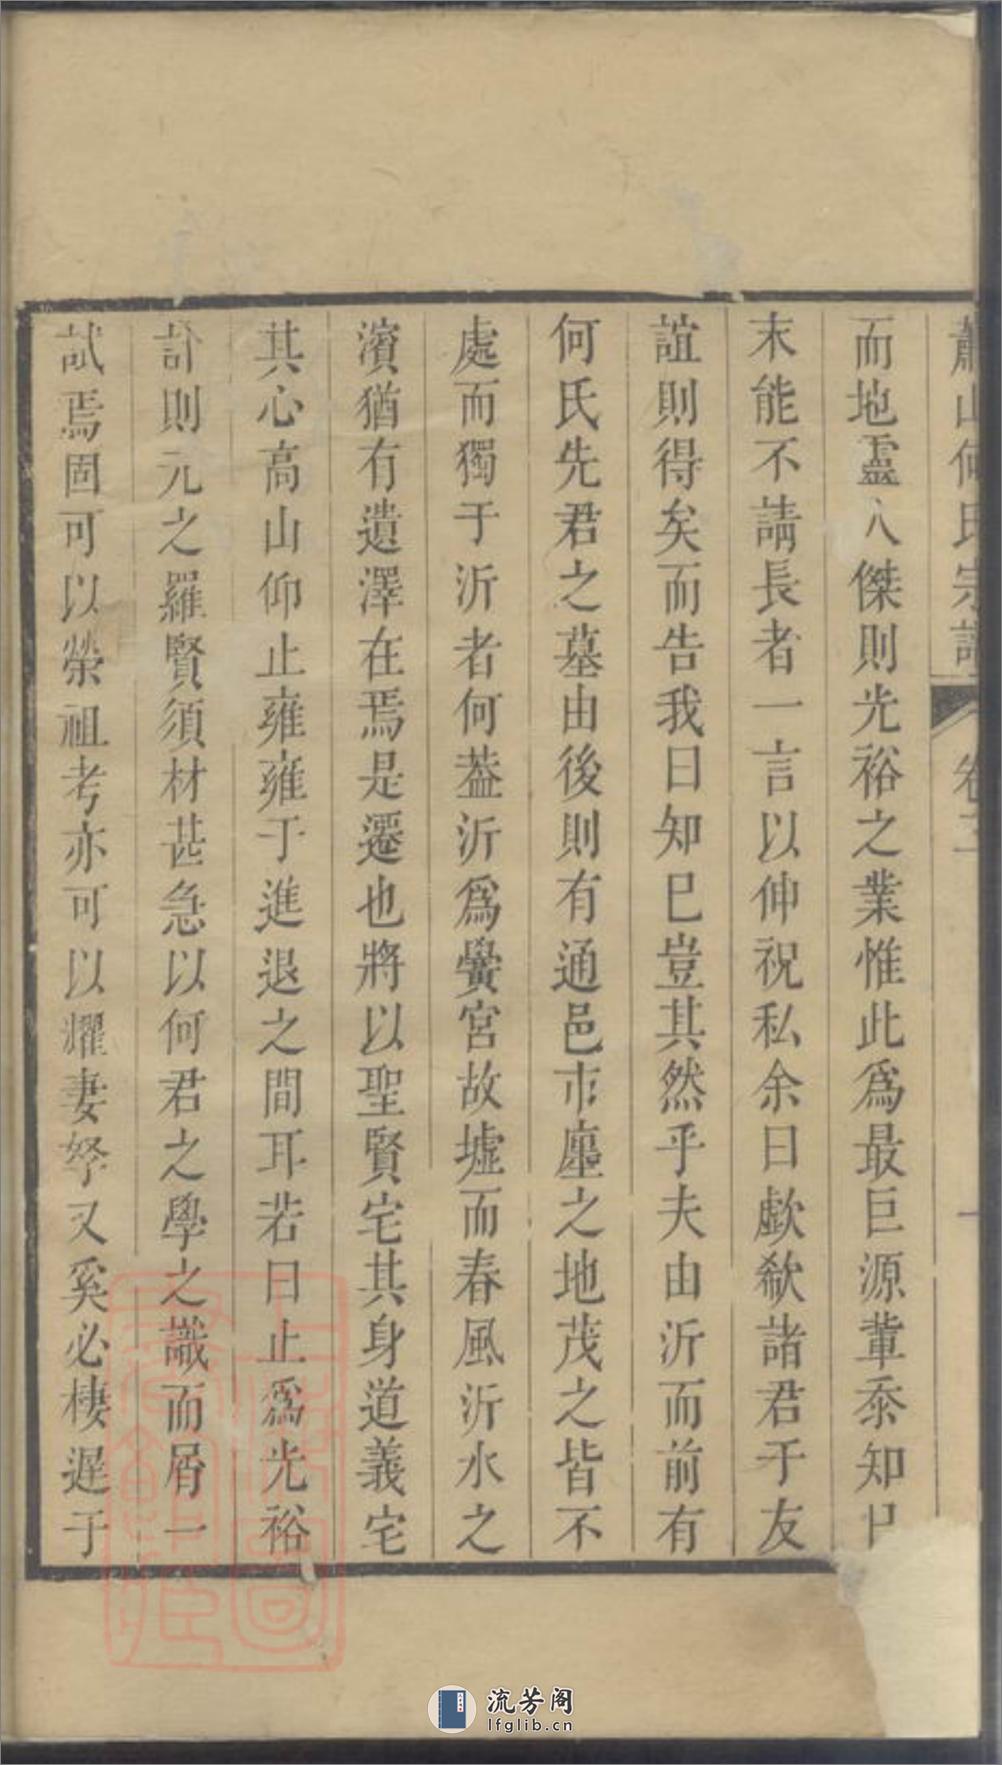 蕭山何氏宗譜 卷二 一
而地靈人傑則光裕之業惟此爲最巨源葷忝知
末能不請長者一言以伸祝私余曰歔欷諸君于友
誼則得矣而告我曰知巳豈其然乎夫由沂而前有
何氏先君之墓由後則有通邑市廛之地茂之皆不
處而獨于沂者何葢沂爲黌宮故墟而春風沂水之
濱猶有遺澤在焉是遷也將以聖賢宅其身道義宅
其心高山仰止雍雍于進退之間耳若曰止爲光裕
計則元之羅賢須材甚急以何君之學之識而屑一
試焉固可以榮祖考亦可以耀妻孥又奚必棲遲于
上海圖書館藏
流芳阁
lfglib.cn